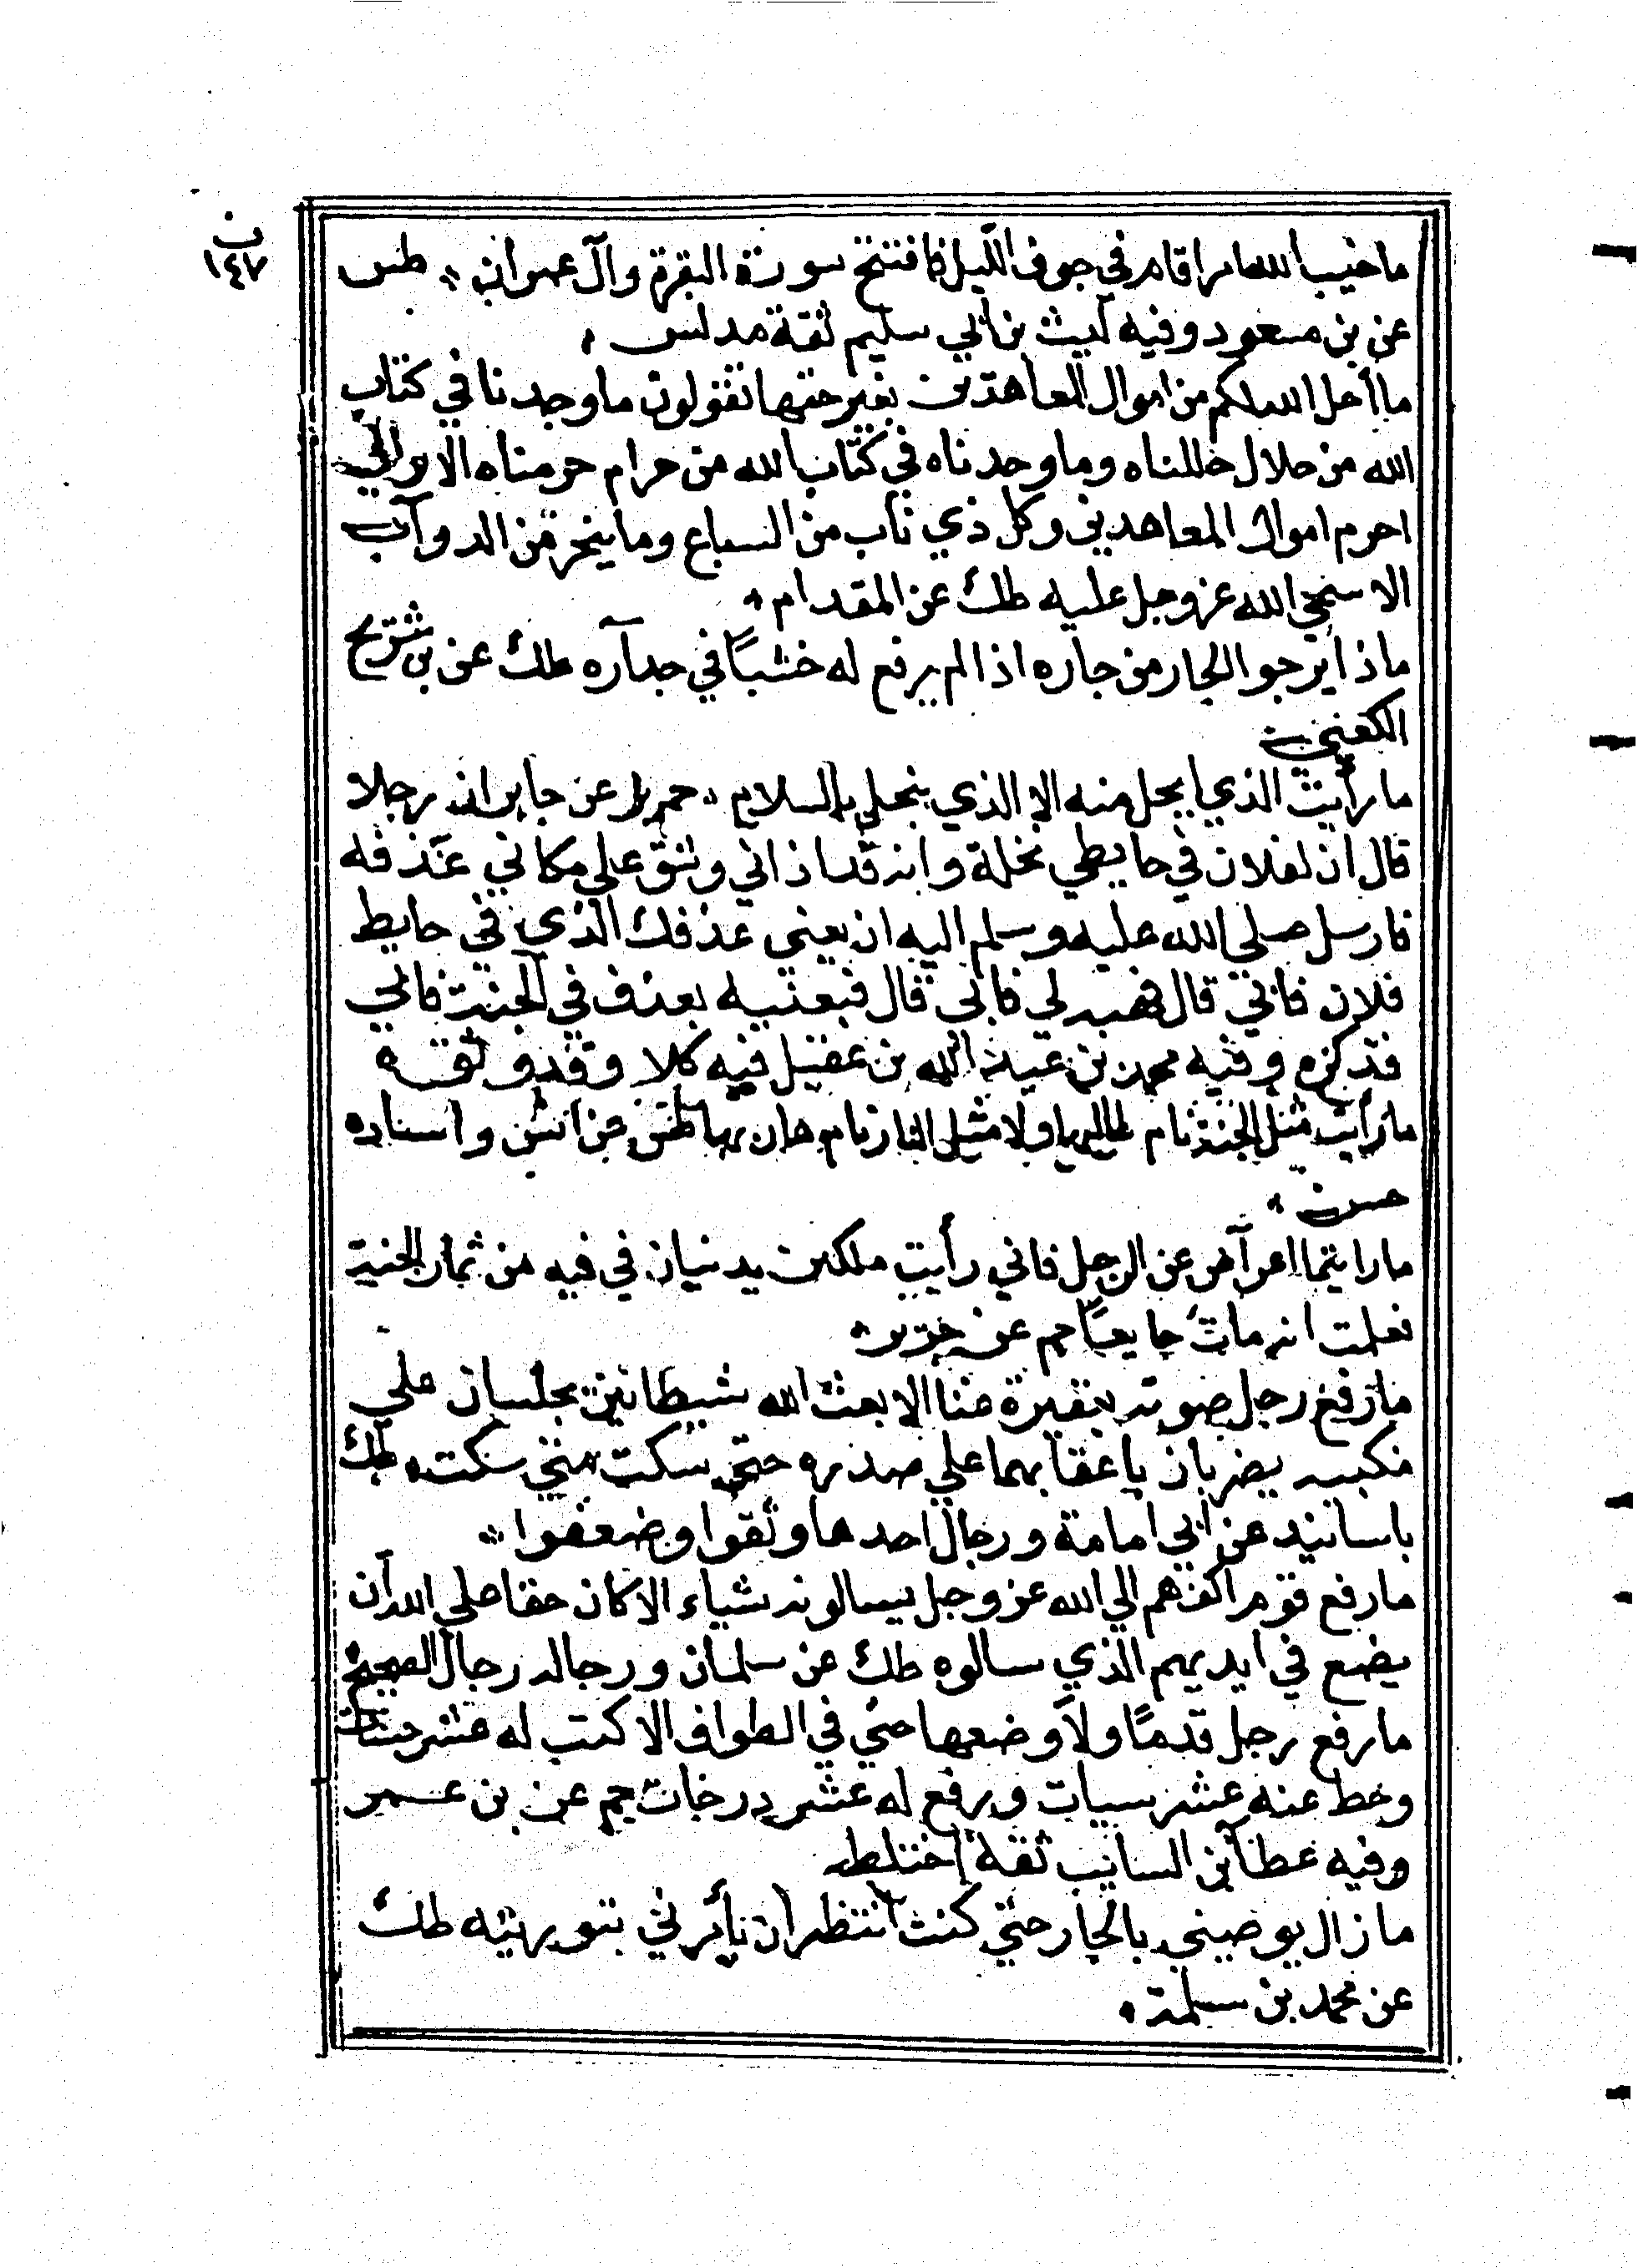 ب
١٤٧
ما خيب الله امرا قام في جوف الليل فافتتح سورة البقرة وآل عمران طس
عن بن مسعود وفيه ليث بن ابي سليم ثقة مدلس
ما أحل الله لكم من اموال المعاهدين بغير حقها تقولون ما وجدنا في كتاب
الله من حلال حللناه وما وجدناه في كتاب الله من حرام حرمناه الا واني
احرم اموال المعاهدين وكل ذي ناب من السباع وما يخر من الدوآب
الا سمي الله عز وجل عليه طك عن المقدام
ماذا يرجو الجار من جاره اذا لم يرفع له خشبًا في جدآره طك عن بن شريح
الكعبي
ما رأيت الذي ابخل منه الا الذي يبخل بالسلام حم بز عن جابر ان رجلا
قال ان لفلان في حايطي نخلة وانه قد اذاني وشق علي مكاني عذقه
فارسل صلى الله عليه وسلم اليه ان بعني عذقك الذي في حايط
فلان فابي قال فهبه لي فابي قال فبعنيه بعذق في الجنة فابي
فذكره وفيه محمد بن عبد الله بن عقيل فيه كلا وقد وثقه
ما رأيت مثل الجنة نام طالبها ولا مثل النار نام هاربها طس عن انس واسناده
حسن
ما رايتما اعرآض عن الرجل فاني رأيت ملكين يدنيان في فيه من ثمار الجنة
فعلمت انه مات جايعًا حم عن جرير
ما رفع رجل صوته بعقيرة غنا الا بعث الله شيطانين يجلسان علي
منكبيه يضربان باعقابهما علي صدره حتي سكت متي سكت طك
باسانيد عن ابي امامة ورجال احدها وثقوا وضعفوا
ما رفع قوم اكفهم الي الله عز وجل يسالونه شياء الا كان حقا علي الله أن
يضع في ايديهم الذي سالوه طك عن سلمان ورجاله رجال الصحيح
ما رفع رجل قدمًا ولا وضعها في الطواف الا كتب له عشر حسنات
وحط عنه عشر سيات ورفع له عشر درجات حم عن بن عمر
وفيه عطا بن السايب ثقة اختلط
ما زال يوصيني بالجار حتي كنت انتظر ان يأمرني بتوريثه طك
عن محمد بن سلمة